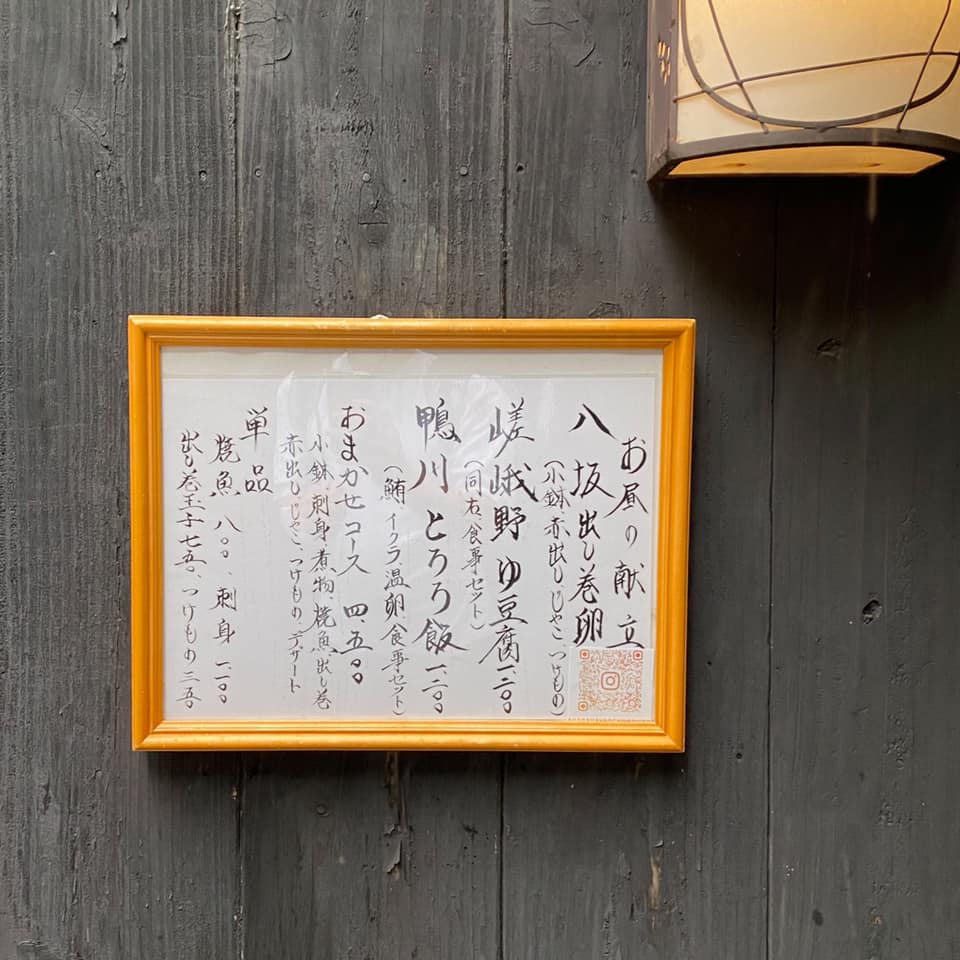 お昼の献立
八坂出し巻卵
(小鉢、赤出し、じゃこ、つけもの)
嵯峨野ゆ豆腐一、二〇〇
(同右、食事セット)
鴨川とろろ飯一、二〇〇
(鮪、イクラ、温卵、食事セット)
おまかせコース 四、五〇〇
小鉢、刺身、煮物、焼魚、出し巻
赤出し、じゃこ、つけもの、デザート
単品
焼魚 八〇〇、刺身 一、一〇〇
出し巻玉子七五〇、つけもの三五〇